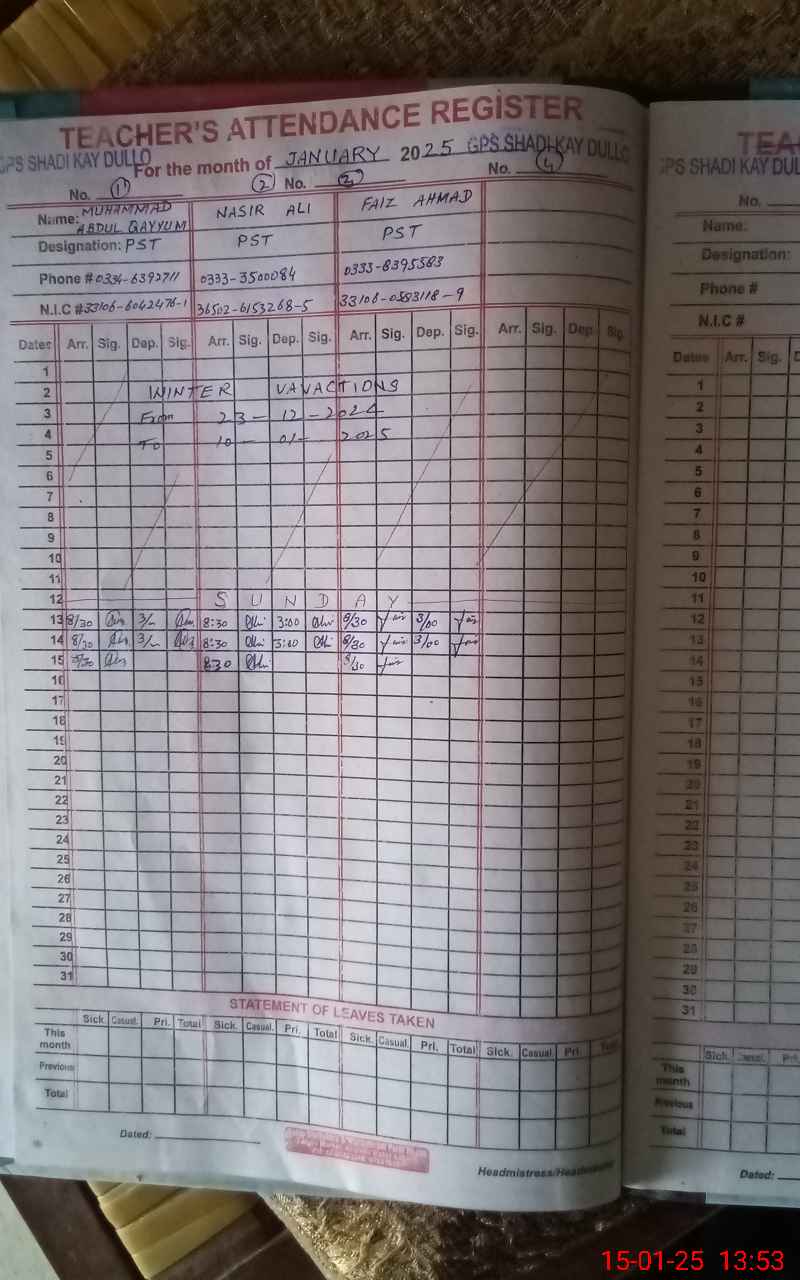 TEACHER'S ATTENDANCE REGISTER
GPS SHADI KAY DULLO For the month of JANUARY 2025 GPS SHADI KAY DULLO
No. 1 2 No. 3 No. 4
Name: MUHAMMAD ABDUL QAYYUM NASIR ALI FAIZ AHMAD
Designation: PST PST PST
Phone # 0334-6392711 0333-3500084 0333-8395583
N.I.C # 33106-6042476-1 36502-6153268-5 33106-0583118-9
Dates Arr. Sig. Dep. Sig. Arr. Sig. Dep. Sig. Arr. Sig. Dep. Sig. Arr. Sig. Dep. Sig.
1
2 WINTER VAVACTIONS
3 From 23-12-2024
4 To 10-01-2025
5
6
7
8
9
10
11
12 SUNDAY
13 8/30 3/- 8:30 3:00 8/30 3/00
14 8/30 3/- 8:30 3:00 8/30 3/00
15 8/30 8:30 8/30
16
17
18
19
20
21
22
23
24
25
26
27
28
29
30
31
STATEMENT OF LEAVES TAKEN
Sick. Casual. Pri. Total Sick. Casual. Pri. Total Sick. Casual. Pri. Total Sick. Casual. Pri. Total
This month
Previous
Total
Dated:
Headmistress/Headmaster
TEA
GPS SHADI KAY DUL
No.
Name:
Designation:
Phone #
N.I.C #
Dates Arr. Sig. D
1
2
3
4
5
6
7
8
9
10
11
12
13
14
15
16
17
18
19
20
21
22
23
24
25
26
27
28
29
30
31
Sick. Casual. Pri.
This month
Previous
Total
Dated:
15-01-25 13:53